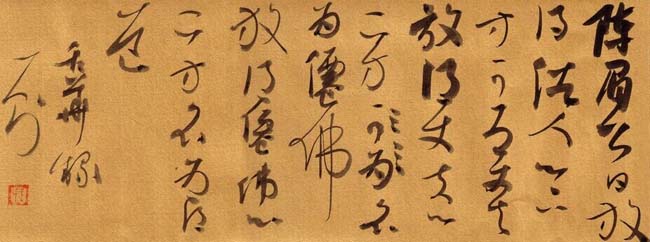 陳眉公曰放
得俗人心下
方可为丈夫
放得丈夫心
下方可為名
為僊佛
放得僊佛心
下方名为得
道